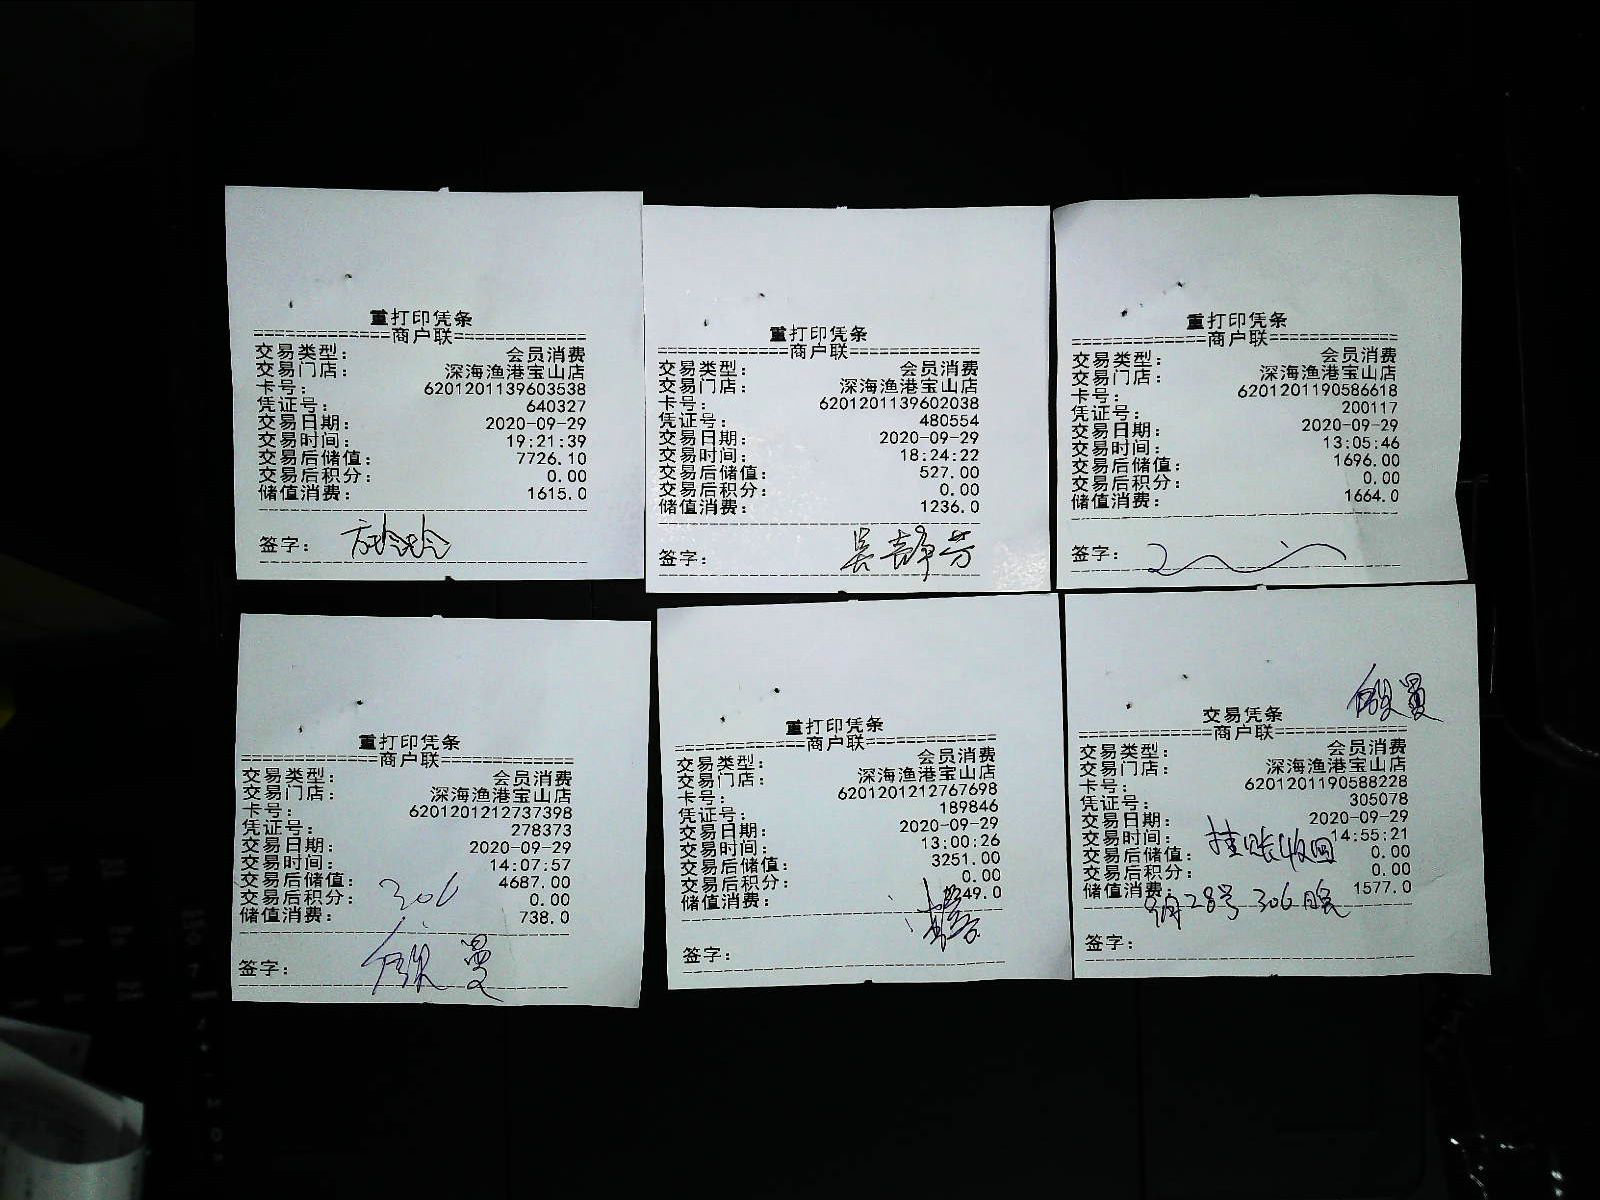 重打印凭条
==============商户联==============
交易类型： 会员消费
交易门店： 深海渔港宝山店
卡号： 6201201139603538
凭证号： 640327
交易日期： 2020-09-29
交易时间： 19:21:39
交易后储值： 7726.10
交易后积分： 0.00
储值消费： 1615.0
签字：
重打印凭条
==============商户联==============
交易类型： 会员消费
交易门店： 深海渔港宝山店
卡号： 6201201139602038
凭证号： 480554
交易日期： 2020-09-29
交易时间： 18:24:22
交易后储值： 527.00
交易后积分： 0.00
储值消费： 1236.0
签字： 吴静芳
重打印凭条
==============商户联==============
交易类型： 会员消费
交易门店： 深海渔港宝山店
卡号： 6201201190586618
凭证号： 200117
交易日期： 2020-09-29
交易时间： 13:05:46
交易后储值： 1696.00
交易后积分： 0.00
储值消费： 1664.0
签字：
重打印凭条
==============商户联==============
交易类型： 会员消费
交易门店： 深海渔港宝山店
卡号： 6201201212737398
凭证号： 278373
交易日期： 2020-09-29
交易时间： 14:07:57
交易后储值： 4687.00
306
交易后积分： 0.00
储值消费： 738.0
签字：
重打印凭条
==============商户联==============
交易类型： 会员消费
交易门店： 深海渔港宝山店
卡号： 6201201212767698
凭证号： 189846
交易日期： 2020-09-29
交易时间： 13:00:26
交易后储值： 3251.00
交易后积分： 0.00
储值消费： 49.0
签字：
交易凭条
==============商户联==============
交易类型： 会员消费
交易门店： 深海渔港宝山店
卡号： 6201201190588228
凭证号： 305078
交易日期： 2020-09-29
交易时间： 14:55:21
挂账收回
交易后储值： 0.00
交易后积分： 0.00
储值消费： 1577.0
28号 306 晚
签字：